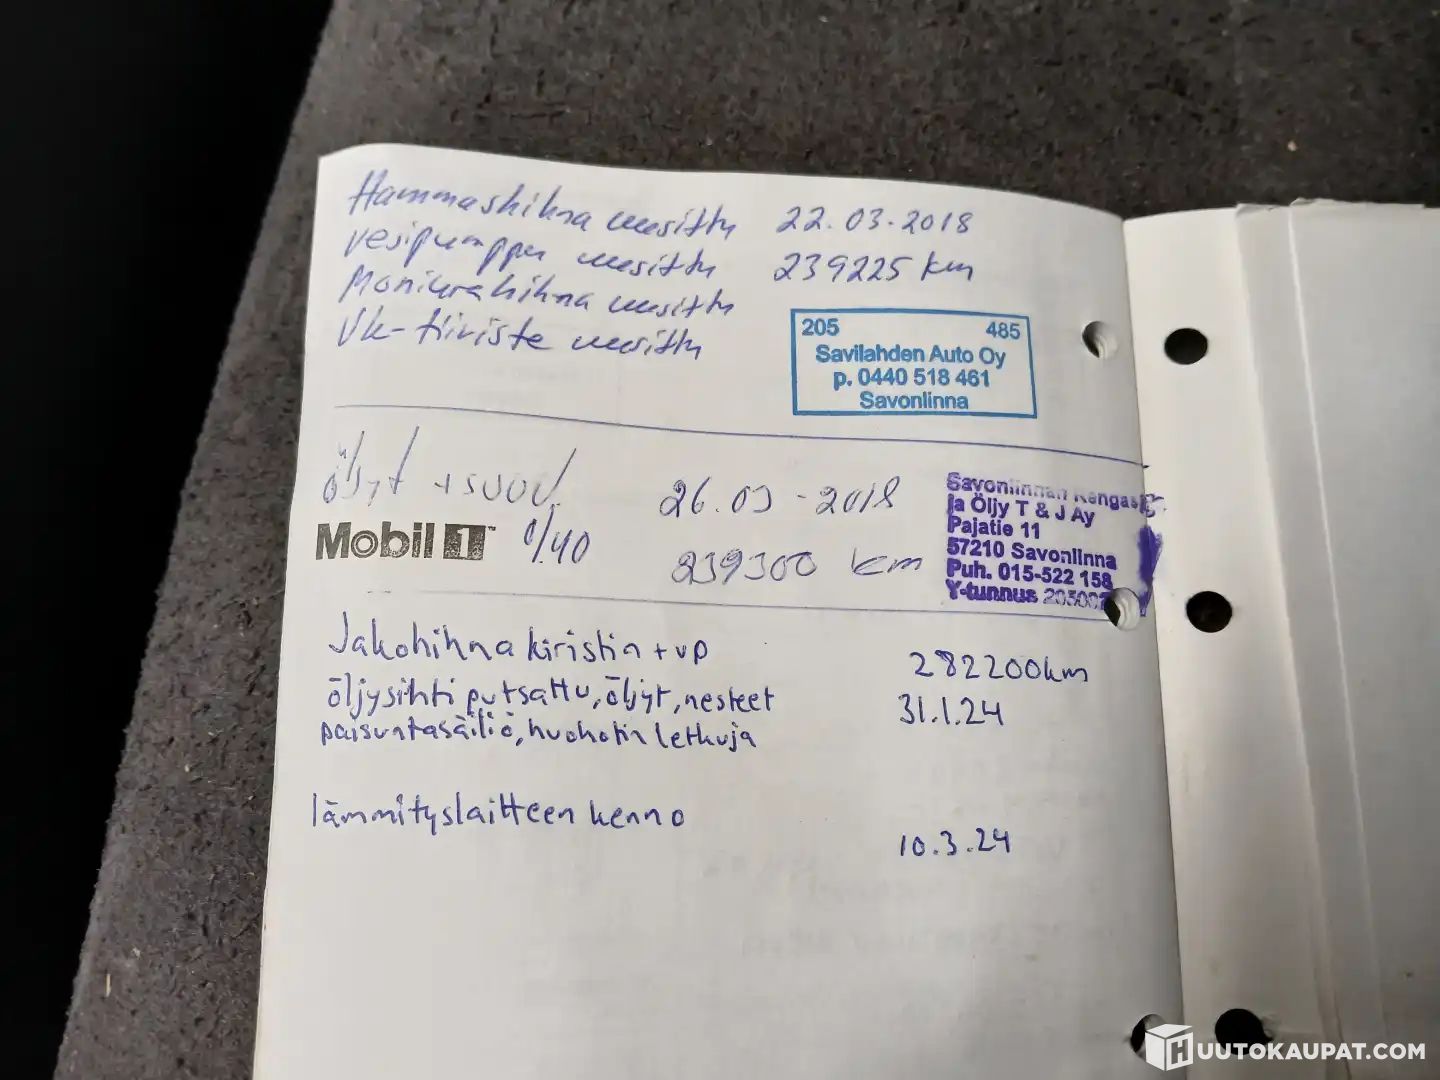 Hammashihna uusittu 22.03.2018
vesipumppu uusittu 239225 km
Moniurahihna uusittu
Vk-tiiviste uusittu
205 485
Savilahden Auto Oy
p. 0440 518 461
Savonlinna
öljyt + suod. 26.03-2018
Mobil 1 0/40
239300 km
Savonlinnan Rengas
ja Öljy T & J Ay
Pajatie 11
57210 Savonlinna
Puh. 015-522 158
Y-tunnus
Jakohihna kiristin + vp 282200km
öljysihti putsattu, öljyt, nesteet 31.1.24
paisuntasäiliö, huohotin letkuja
lämmityslaitteen kenno
10.3.24
HUUTOKAUPAT.COM